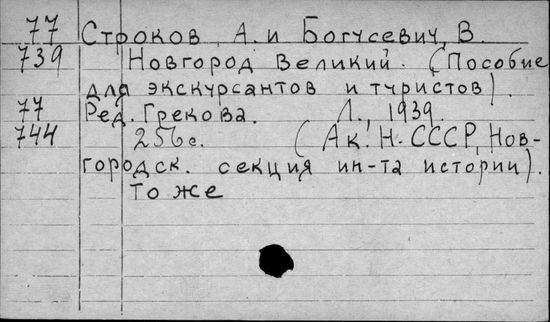 77 Строков, А. и Богусевич, В.
739 Новгород Великий. (Пособие
для экскурсантов и туристов).
77 Ред. Грекова. Л., 1939.
744 256с. (Ак. Н. СССР, Нов-
городск. секция ин-та истории).
То же